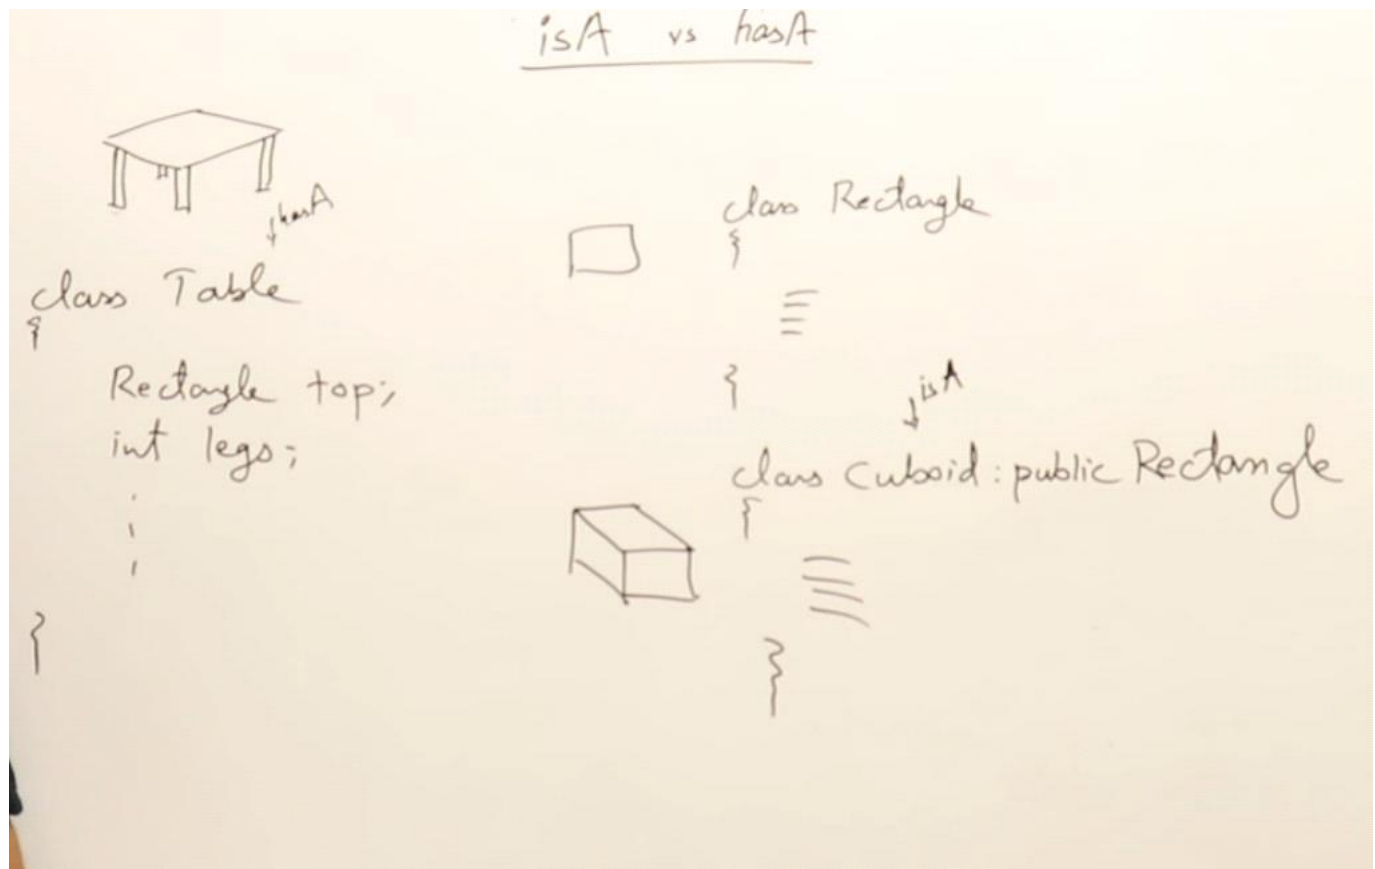 isA vs hasA
hasA
class Table
{
Rectangle top;
int legs;
}
class Rectangle
{
}
isA
class Cuboid : public Rectangle
{
}